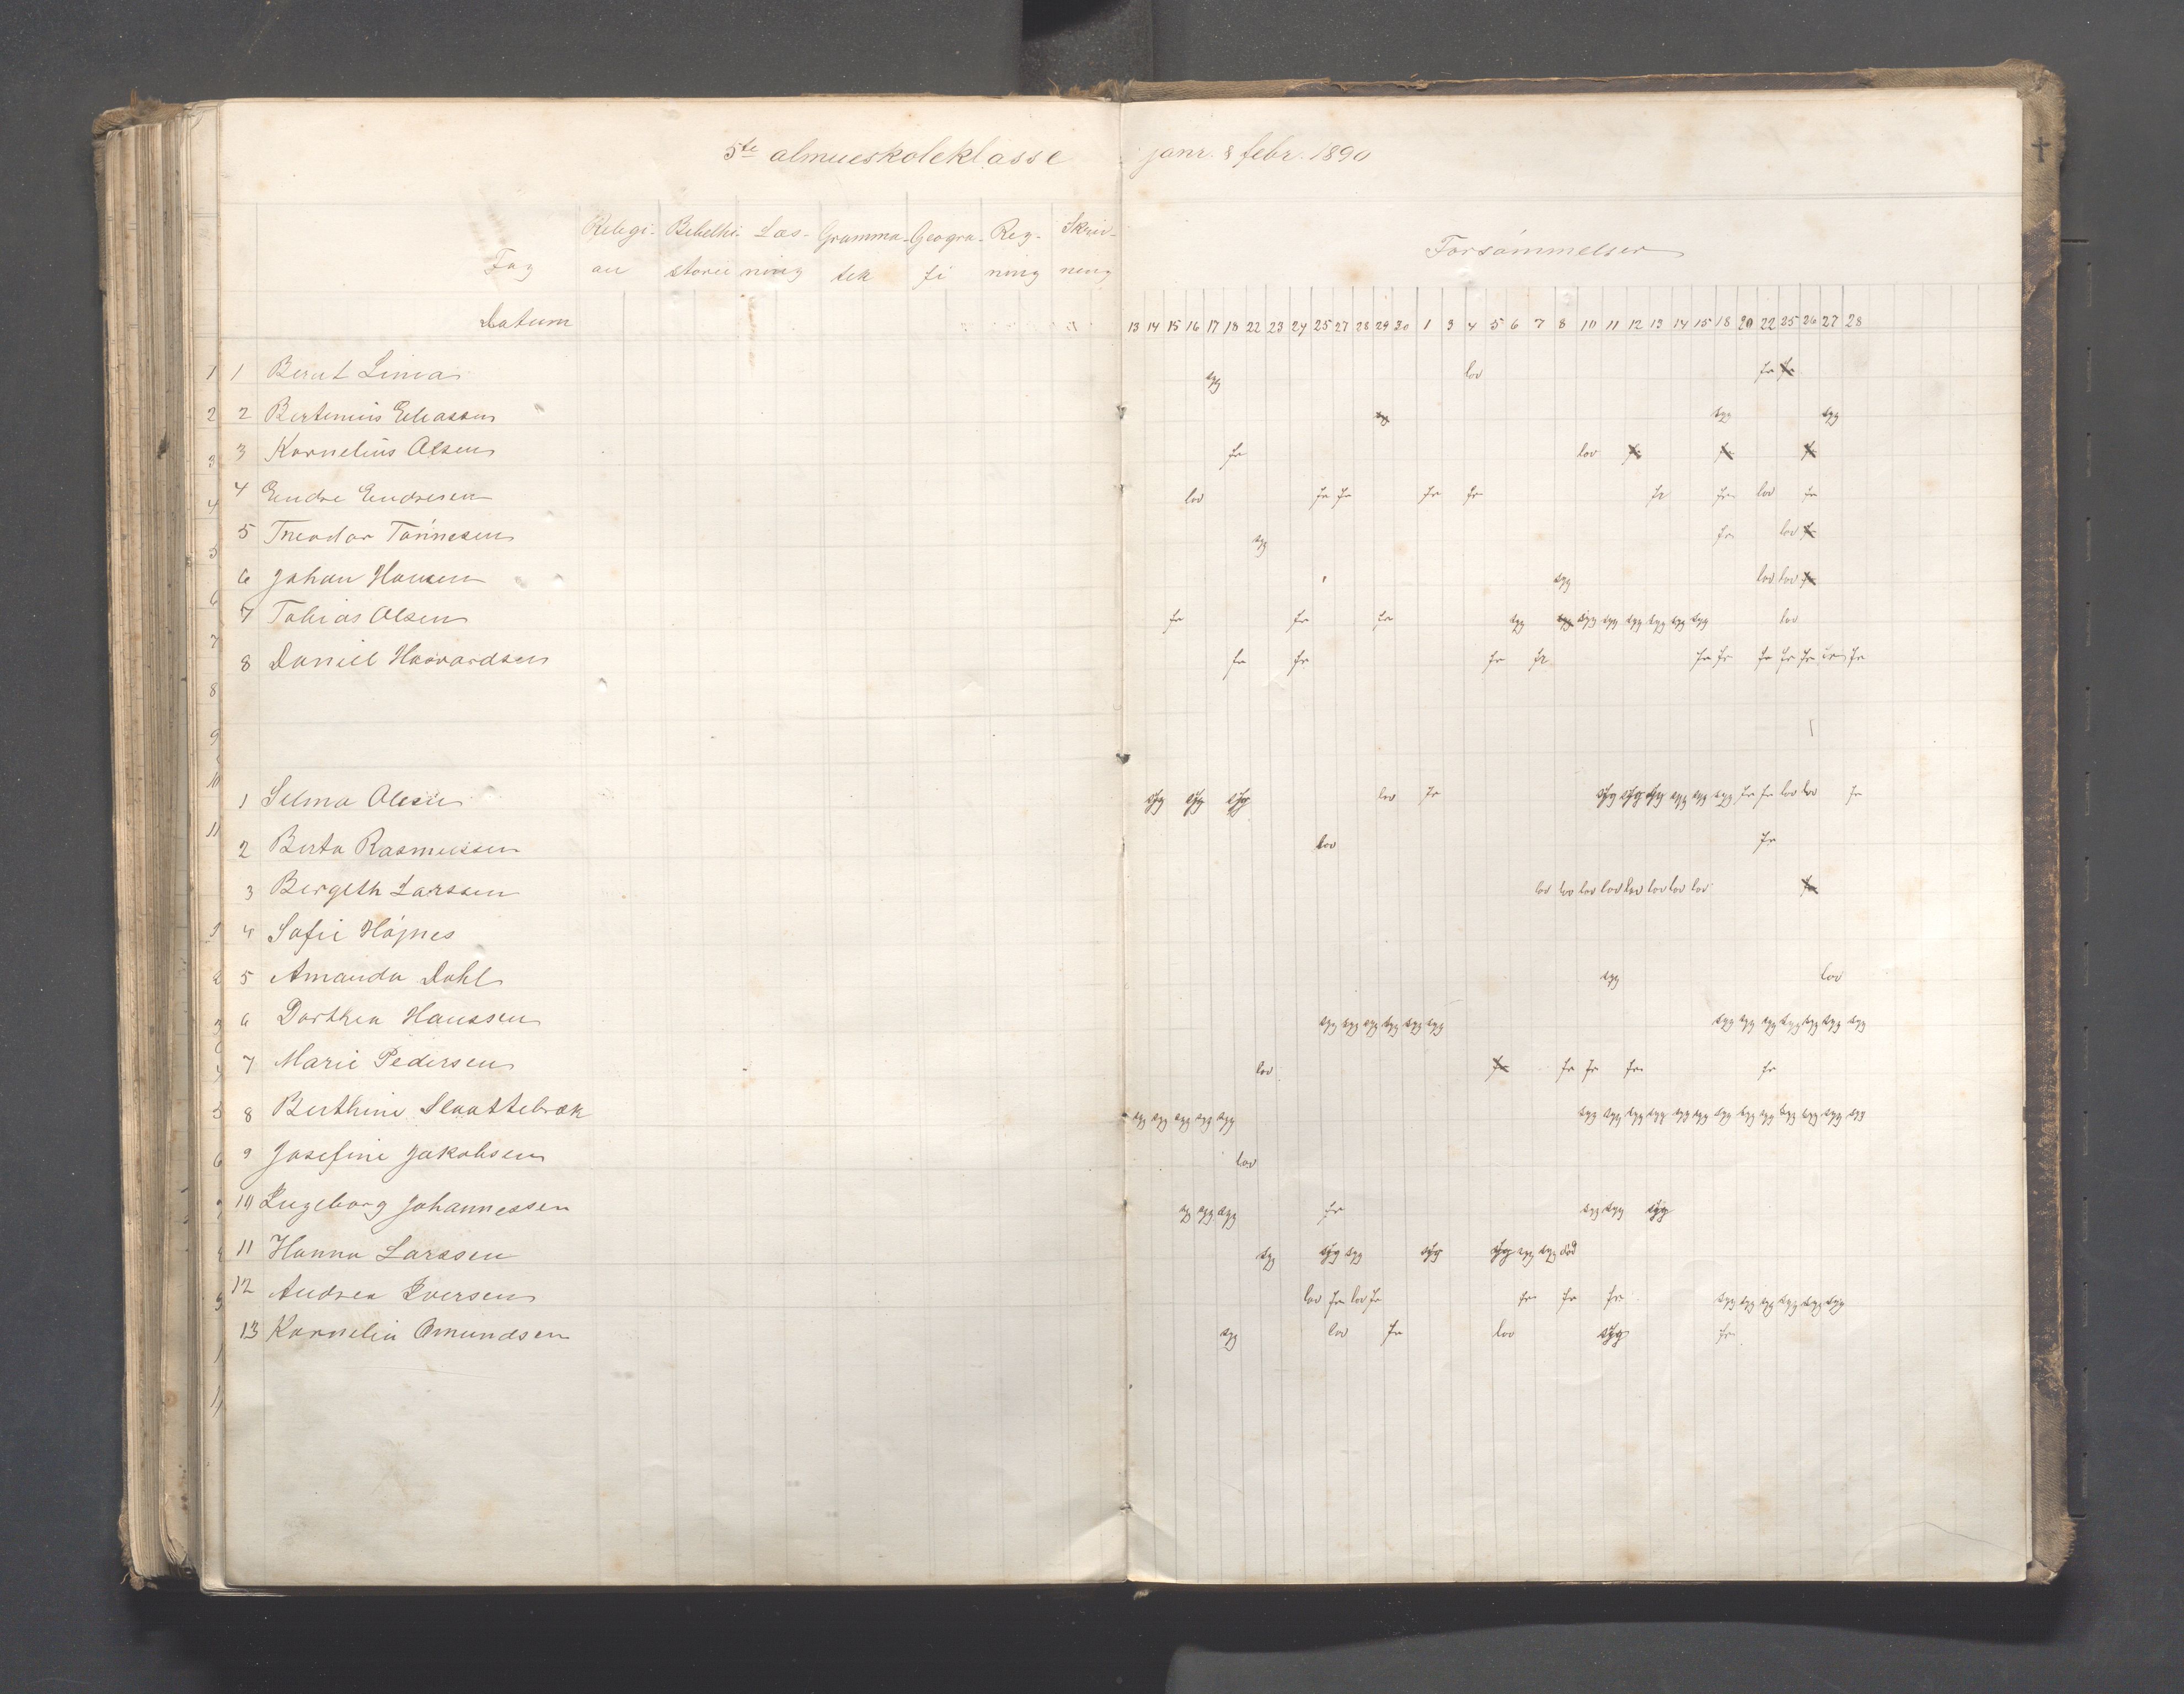 5te almueskoleklasse janr. & febr. 1890
Fag Religi- Bibelhi- Læs- Gramma- Geogra- Reg- Skriv-
on storie ning tik fi ning ning
Forsømmelser
Datum 13 14 15 16 17 18 22 23 24 25 27 28 29 30 1 3 4 5 6 7 8 10 11 12 13 14 15 18 20 22 25 26 27 28
1 1 Bernt Lima syg lov fr fr
2 2 Bertinius Eliassen syg syg syg
3 3 Kornelius Olsen fr lov fr fr fr
4 4 Endre Endresen lov fr fr fr fr fr fr lov fr
5 5 Theodor Tønnesen syg fr lov fr
6 6 Johan Hansen syg lov lov fr
7 7 Tobias Olsen fr fr fr syg syg syg syg syg syg syg syg lov
8 8 Daniel Haavardsen fr fr fr fr fr fr fr fr fr fr
9
10
1 Selma Olsen syg syg syg lov fr syg syg syg syg syg syg fr fr lov lov fr
11 2 Berta Rasmussen lov fr
3 Bergeth Larssen lov lov lov lov lov lov lov lov fr
4 Sofie Højnes
5 Amanda Dahl syg lov
6 Dorthea Hanssen syg syg syg syg syg syg syg syg syg syg syg syg syg
7 Marie Pedersen lov fr fr fr fr fr
8 Berthine Slaattebræk syg syg syg syg syg syg syg syg syg syg syg syg syg syg syg syg syg syg
9 Josefine Jakobsen lov
10 Ingeborg Johannessen syg syg syg fr syg syg syg
11 Hanna Larssen syg syg syg syg syg syg syg død
12 Andrea Iversen lov fr lov fr fr fr fr syg syg syg syg syg syg
13 Kornelia Omundsen syg lov fr lov syg fr